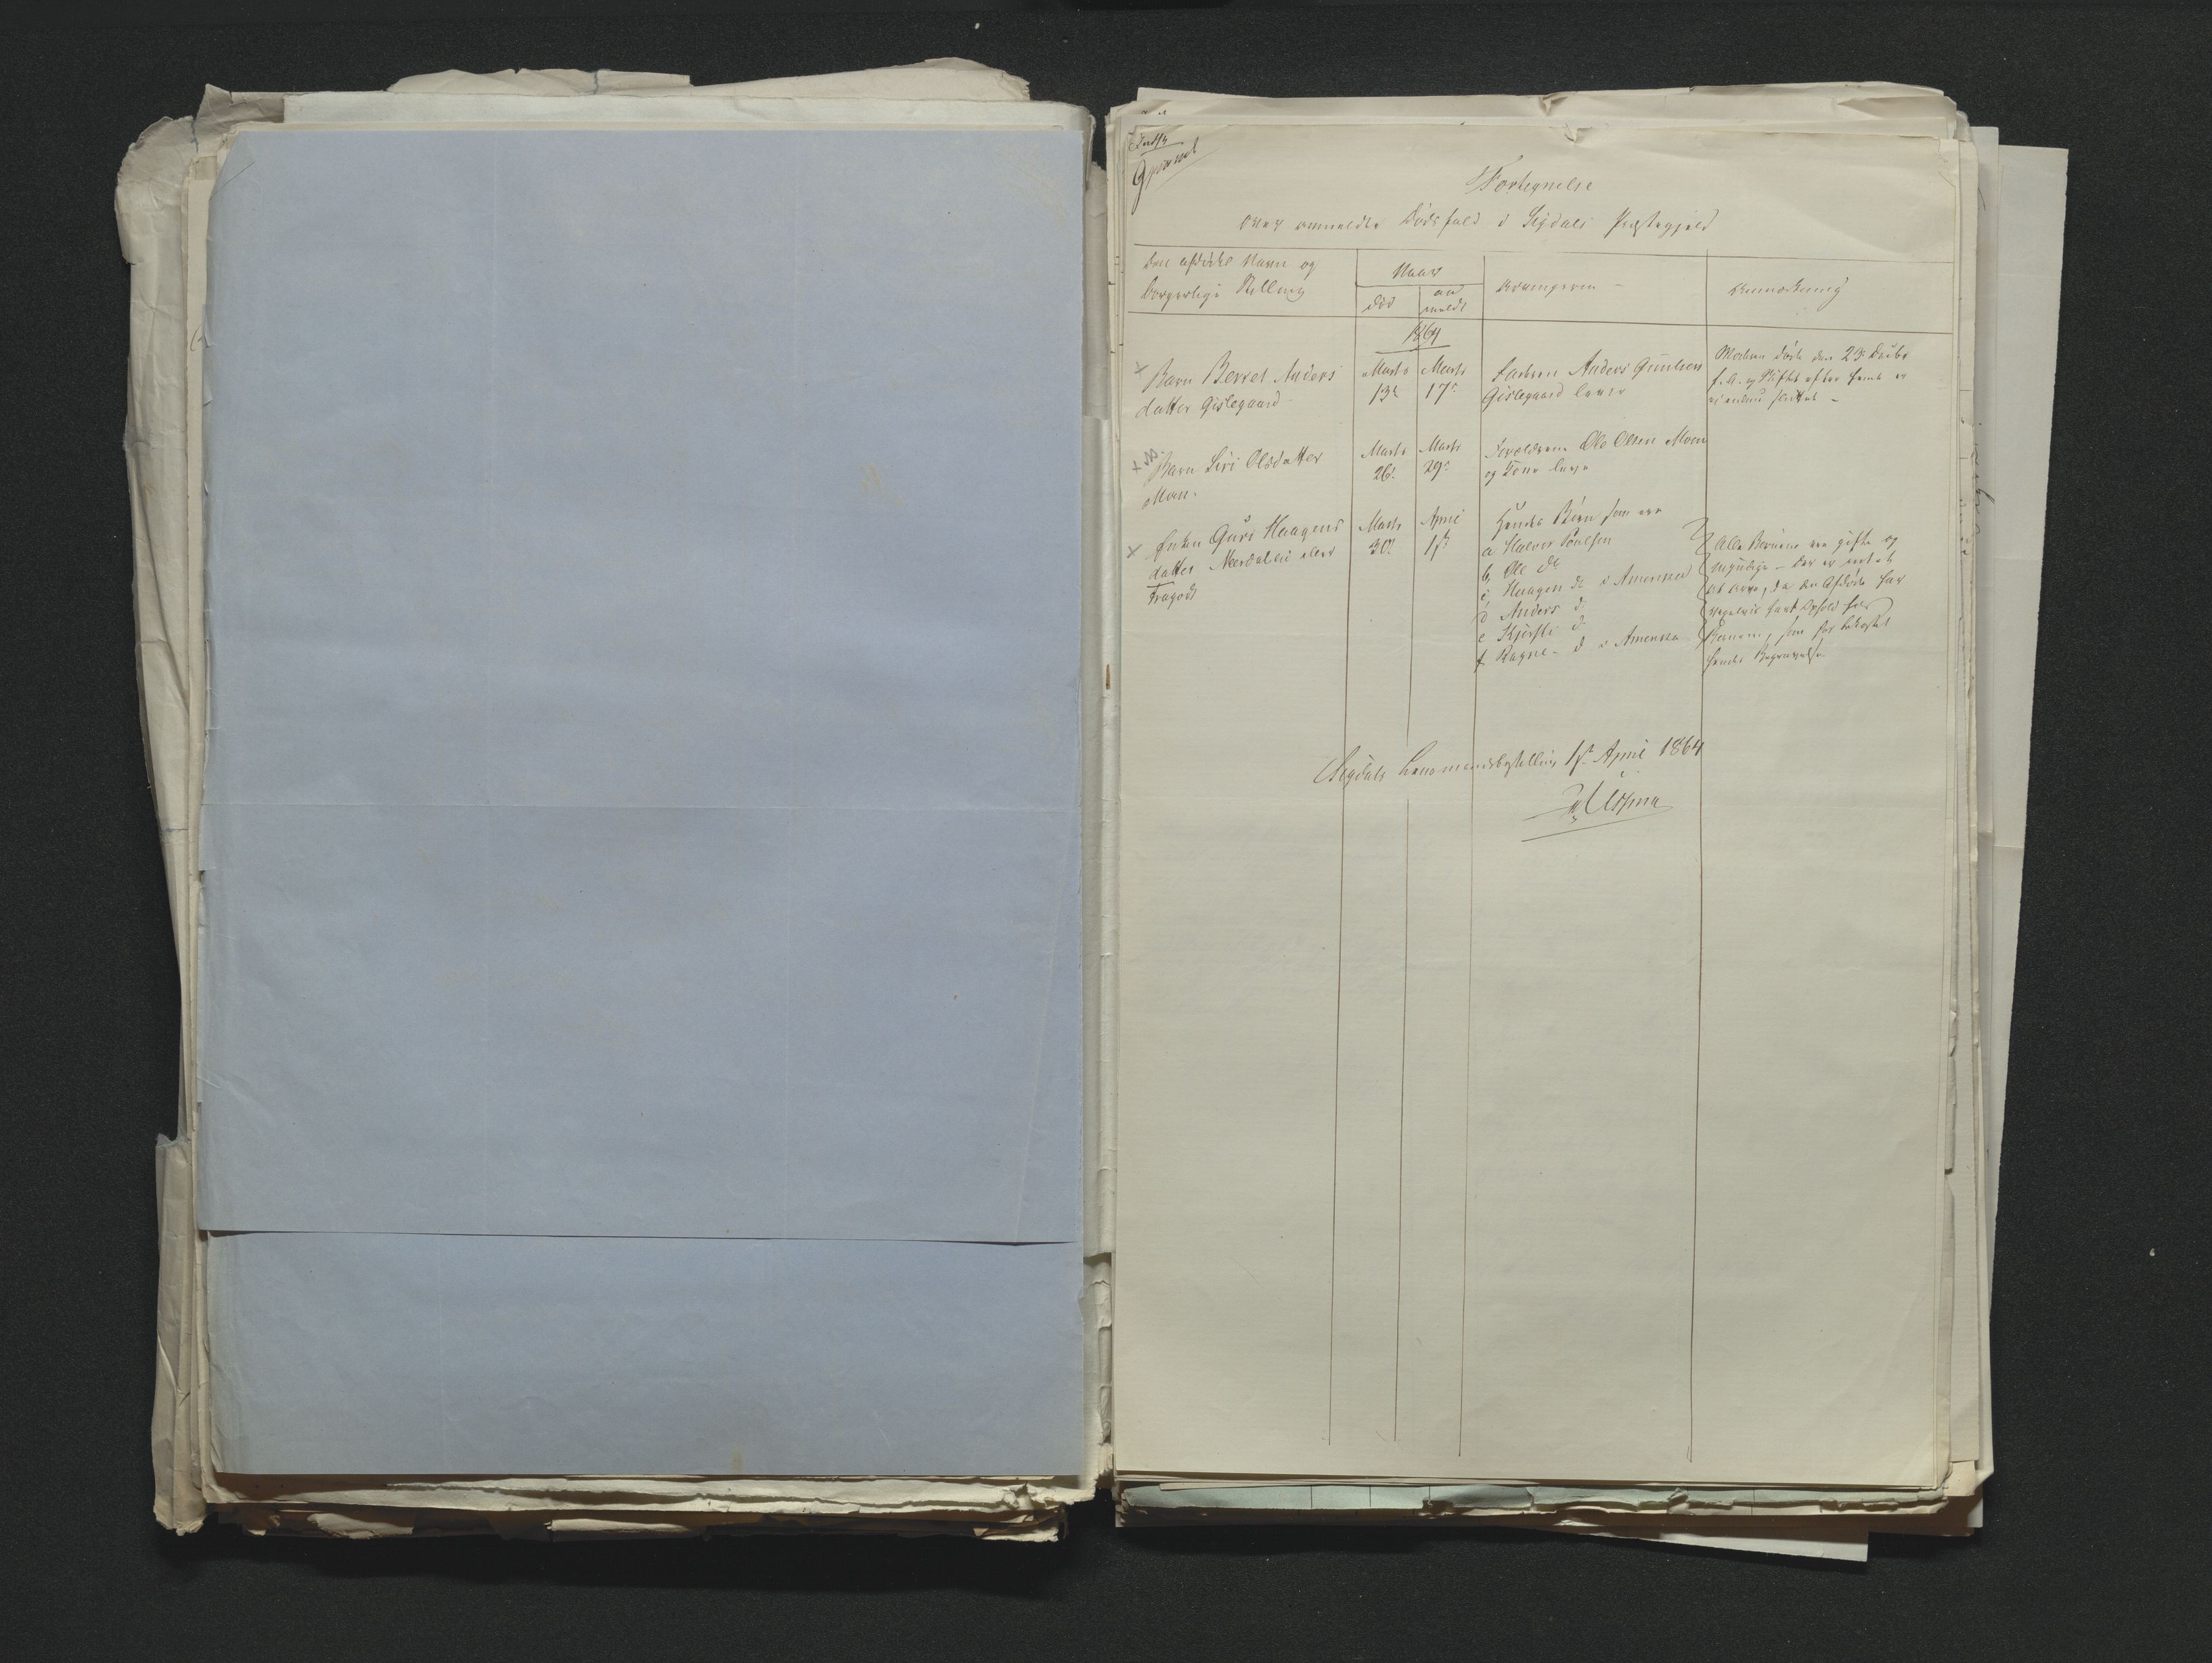 Fortegnelse
over anmeldte Dødsfald i Sigdals Præstegjeld
den afdødes Navn og
borgerlige Stilling
Naar
død
an
meldt
Arvingerne -
Anmærkning
1864
Barn Berret Anders
datter Gislegaard
Marts
13de
Marts
17de
Faderen Anders Gundersen
Gislegaard lever
Moderen døde den 23de Decbr
f. A. og Skiftet efter hende er
ei endnu sluttet -
Barn Siri Olsdatter
Moen.
Marts
26de
Marts
29de
Forældrene Ole Olsen Moen
og Tone lever
Enken Guri Haagens
datter Neerdalen eller
Marts
30te
April
1ste
Hendes Børn som ere
a Halvor Poulsen
b, Ole do
c, Haagen do i Amerika
d Anders do
e Kjersti do
f Ragne - do i Amerika
Alle Børnene ere gifte og
myndige - Der er intet
at arve, da den Afdøde har
havt Ophold hos
Børnene, som har bekostet
hendes Begravelse
Sigdals Lensmandsbestilling 1ste April 1864